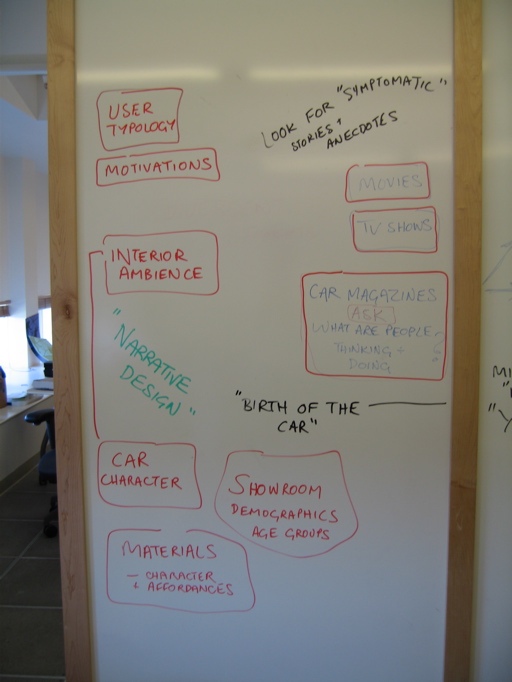 USER
TYPOLOGY
MOTIVATIONS
LOOK FOR "SYMPTOMATIC"
STORIES +
ANECDOTES
MOVIES
TV SHOWS
INTERIOR
AMBIENCE
CAR MAGAZINES
ASK
WHAT ARE PEOPLE
THINKING +
DOING
??
"NARRATIVE
DESIGN"
"BIRTH OF THE
CAR"
CAR
CHARACTER
SHOWROOM
DEMOGRAPHICS
AGE GROUPS
MATERIALS
- CHARACTER
+ AFFORDANCES
MI
"Y